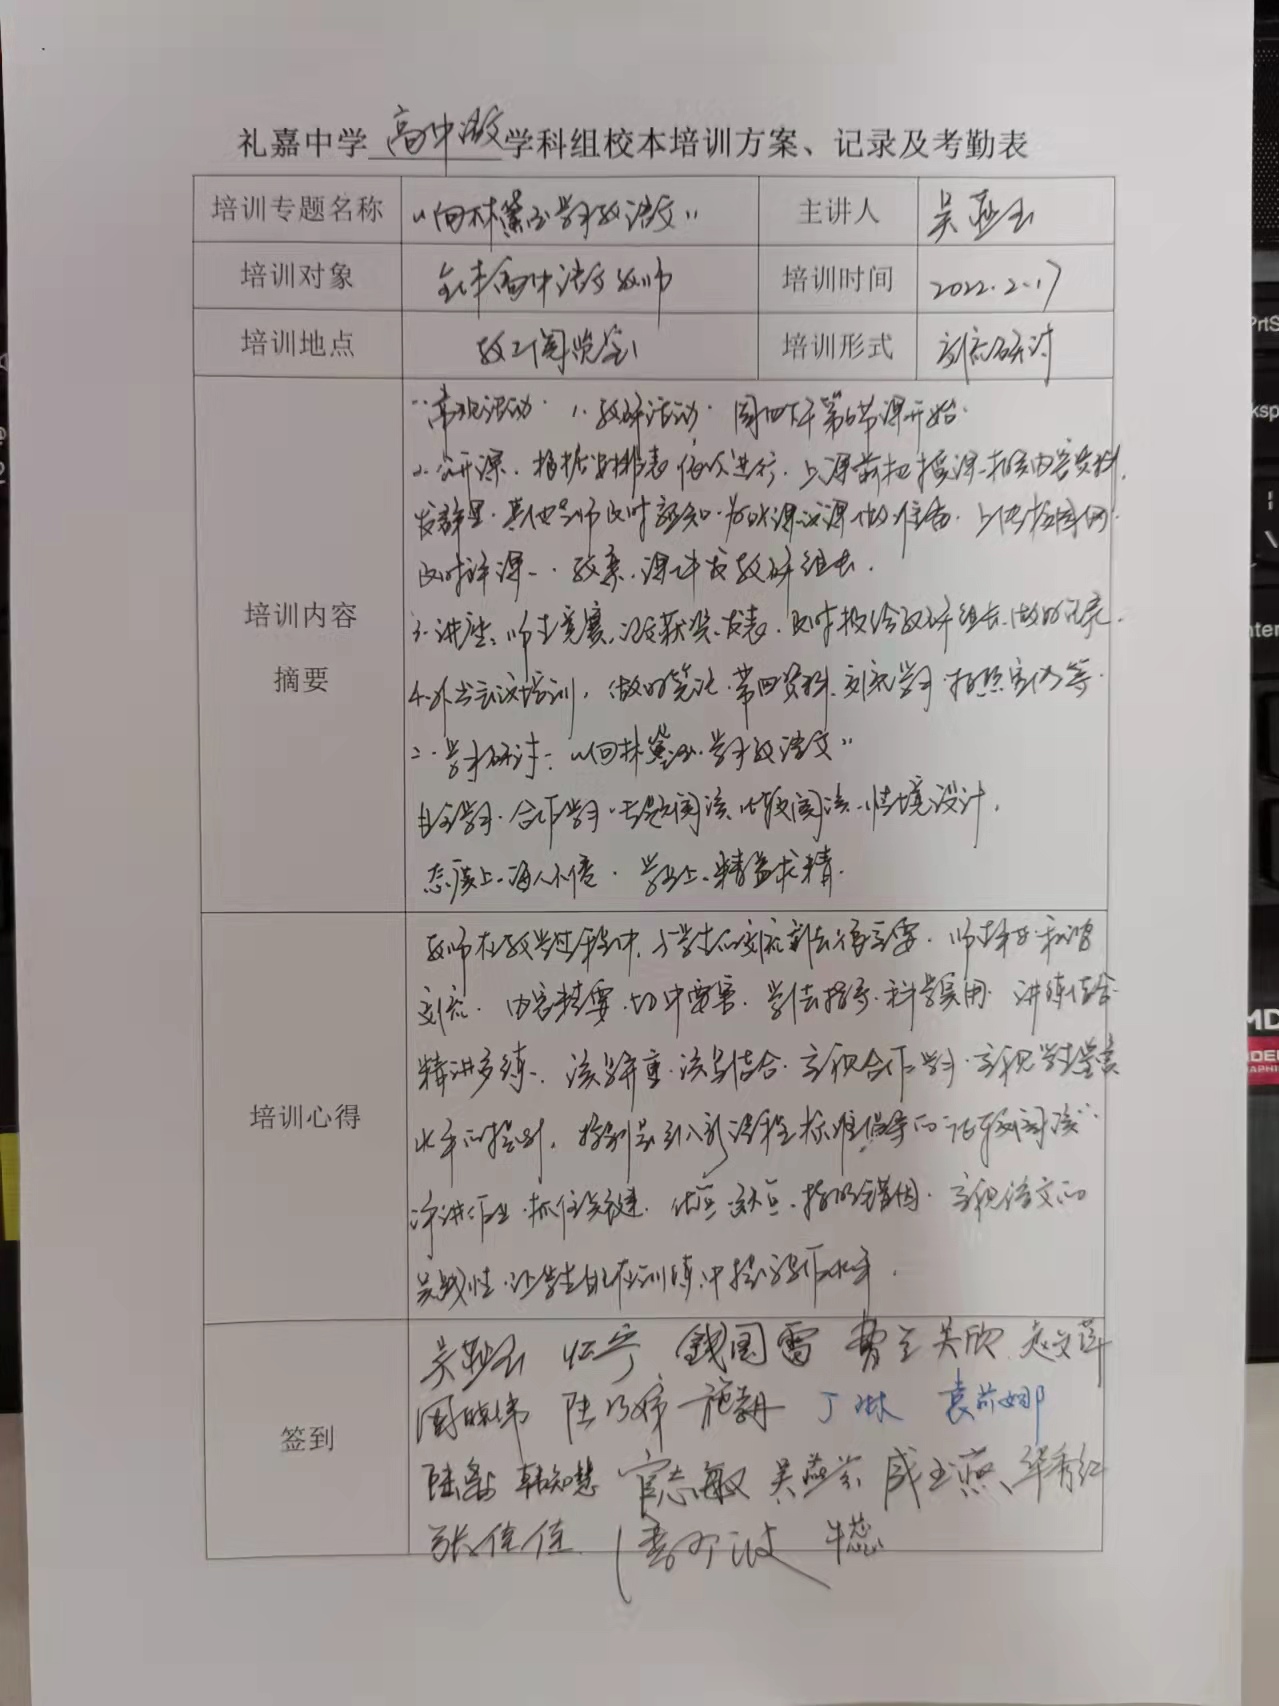 礼嘉中学高中语文学科组校本培训方案、记录及考勤表
培训专题名称 “向林黛玉学习教语文” 主讲人 吴亚玉
培训对象 全体高中语文教师 培训时间 2022.2.17
培训地点 教工阅览室 培训形式 交流研讨
培训内容
摘要
一、常规活动 1、教研活动 周四下午第6节课开始
2、公开课、根据安排表依次进行、上课前把授课内容资料
发群里、其他老师及时、为听课议课做准备、上传校园网
及时评课、教案、课件发教研组长.
3、讲座、师生竞赛、论文获奖、发表、及时报给教研组长、做好记录.
4、外出会议培训、做好笔记、带回资料、交流学习、拍照宣传等.
二、学习研讨: “向林黛玉学习教语文”
自主学习、合作学习、专题阅读、比较阅读、情境设计.
态度上、诲人不倦. 学习上、精益求精.
培训心得
教师在教学过程中、与学生的交流方法很重要.
交流. 内容精要、切中要害. 学法指导、科学实用. 讲练结合
精讲多练、读写并重、读写结合. 重视合作学习、重视学生鉴赏
水平的提升. 特别是引入新课程标准倡导的“比较阅读”.
评讲作业、抓住关键. 重视语文的
让学生能在训练中提高写作水平.
签到
吴亚玉 钱国雷 费 吴欣 赵文萍
周晓伟 陆乃娣 丁琳 袁前娜
韩知慧 官志敏 吴燕芬 成玉燕 华秀红
张佳佳 牛蕊